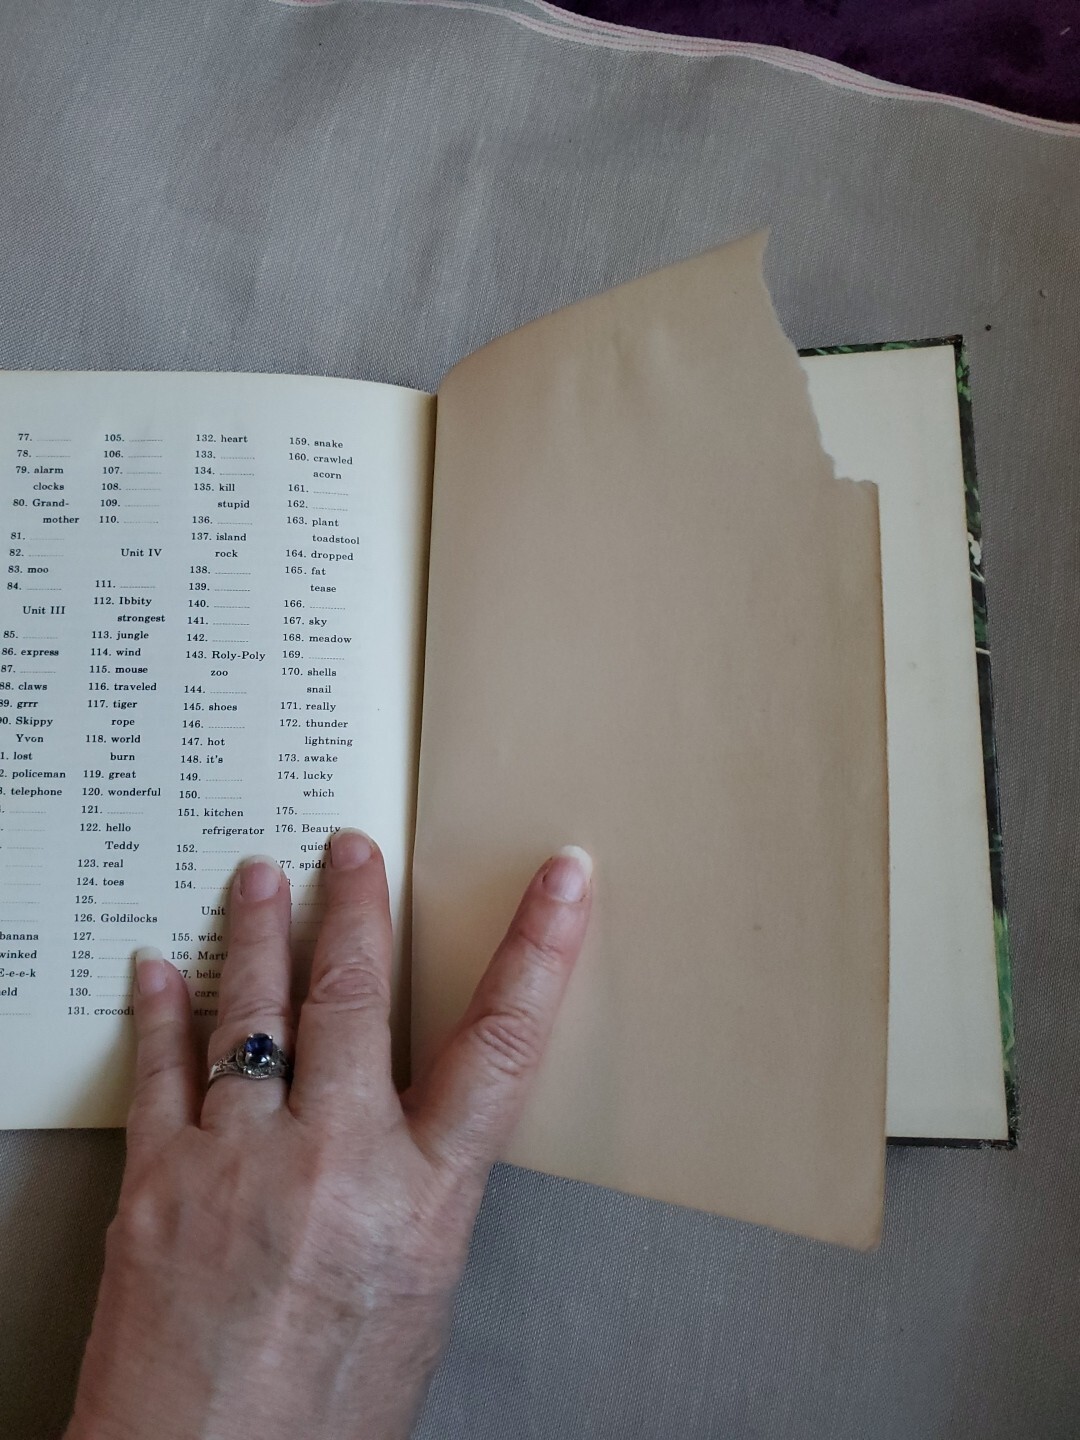 77.
78.
79. alarm
clocks
80. Grand-
mother
81.
82.
83. moo
84.
Unit III
85.
86. express
87.
88. claws
89. grrr
90. Skippy
Yvon
1. lost
2. policeman
3. telephone
banana
winked
E-e-e-k
eld
105.
106.
107.
108.
109.
110.
Unit IV
111.
112. Ibbity
strongest
113. jungle
114. wind
115. mouse
116. traveled
117. tiger
rope
118. world
burn
119. great
120. wonderful
121.
122. hello
Teddy
123. real
124. toes
125.
126. Goldilocks
127.
128.
129.
130.
131. crocodi
132. heart
133.
134.
135. kill
stupid
136.
137. island
rock
138.
139.
140.
141.
142.
143. Roly-Poly
zoo
144.
145. shoes
146.
147. hot
148. it's
149.
150.
151. kitchen
refrigerator
152.
153.
154.
Unit
155. wide
156. Mart
57. belie
care
stre
159. snake
160. crawled
acorn
161.
162.
163. plant
toadstool
164. dropped
165. fat
tease
166.
167. sky
168. meadow
169.
170. shells
snail
171. really
172. thunder
lightning
173. awake
174. lucky
which
175.
176. Beauty
quiet
77. spide